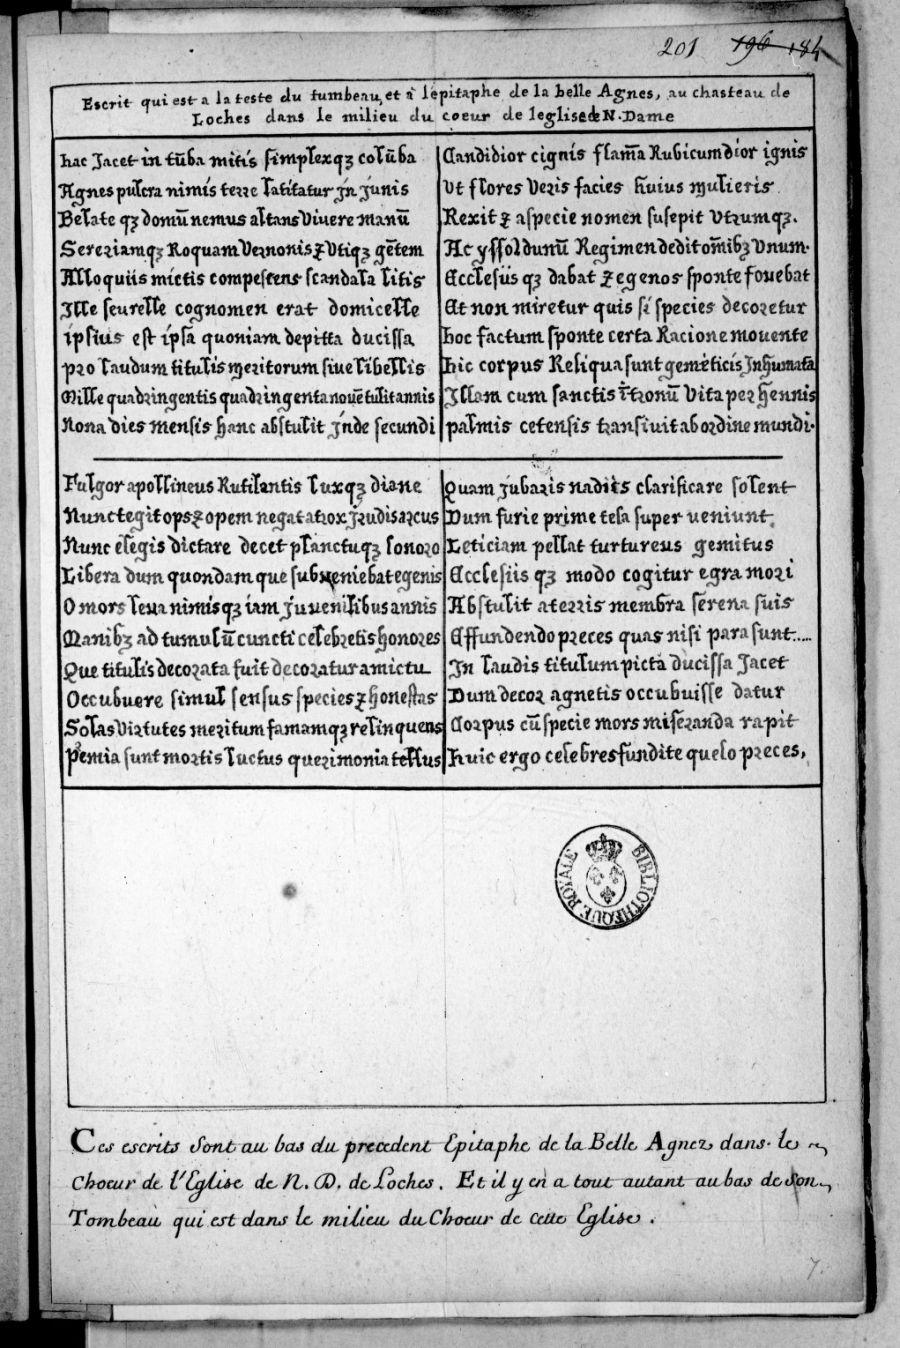 201 196 184
Escrit qui est a la teste du tumbeau, et a lepitaphe de la belle Agnes, au chasteau de
Loches dans le milieu du coeur de leglise de N. Dame
hac Jacet in tūba mitis simplexqꝫ colūba
Agnes pulcra nimis terre latitatur jn junis
Belate qꝫ domū nemus altans Viuere manū
Sereriamqꝫ Roquam Vernonis ⁊ Vtiqꝫ gētem
Alloquiis mictis compescens scandala litis
Jlle seurelle cognomen erat domicelle
ipsius est ipsa quoniam depitta ducissa
pro laudum titulis meritorum siue libellis
Mille quadringentis quadringenta nouē tulit annis
Nona dies mensis hanc abstulit jnde secundi
Candidior cignis flam̄a Rubicumdior ignis
Vt flores Veris facies huius mulieris
Rexit ⁊ a specie nomen susepit Vtrumqꝫ.
Ac yssoldunū Regimen dedit om̄ibꝫ Vnum.
Ecclesiis qꝫ dabat ⁊ egenos sponte fouebat
Et non miretur quis si species decoretur
hoc factum sponte certa Racione mouente
hic corpus Reliqua sunt gemeticis Jnhumata
Jllam cum sanctis t̄tronū Vita perhennis
palmis cetensis transiuit ab ordine mundi.
Fulgor apollineus Rutilantis luxqꝫ diane
Nunc tegit ops ⁊ opem negat atrox jrudis arcus
Nunc elegis dictare decet planctuqꝫ sonoro
Libera dum quondam que subueniebat egenis
O mors leua nimis qꝫ iam juuenilibus annis
Manibꝫ ad tumulū cuncti celebretis honores
Que titulis decorata fuit decoratur amictu
Occubuere simul sensus species ⁊ honestas
Solas Virtutes meritum famamqꝫ relinquens
Pemia sunt mortis luctus querimonia tellus
Quam jubaris nadiis clarificare solent
Dum furie prime tela super ueniunt
Leticiam pellat turtureus gemitus
Ecclesiis qꝫ modo cogitur egra mori
Abstulit a terris membra serena suis
Effundendo preces quas nisi para sunt....
Jn laudis titulum picta ducissa Jacet
Dum decor agnetis occubuisse datur
Corpus cū specie mors miseranda rapit
huic ergo celebres fundite quelo preces,
BIBLIOTHEQUE ROYALE
Ces escrits sont au bas du precedent Epitaphe de la Belle Agnez dans le
Choeur de l'Eglise de N. D. de Loches. Et il y en a tout autant au bas de son
Tombeau qui est dans le milieu du Choeur de cette Eglise.
7.